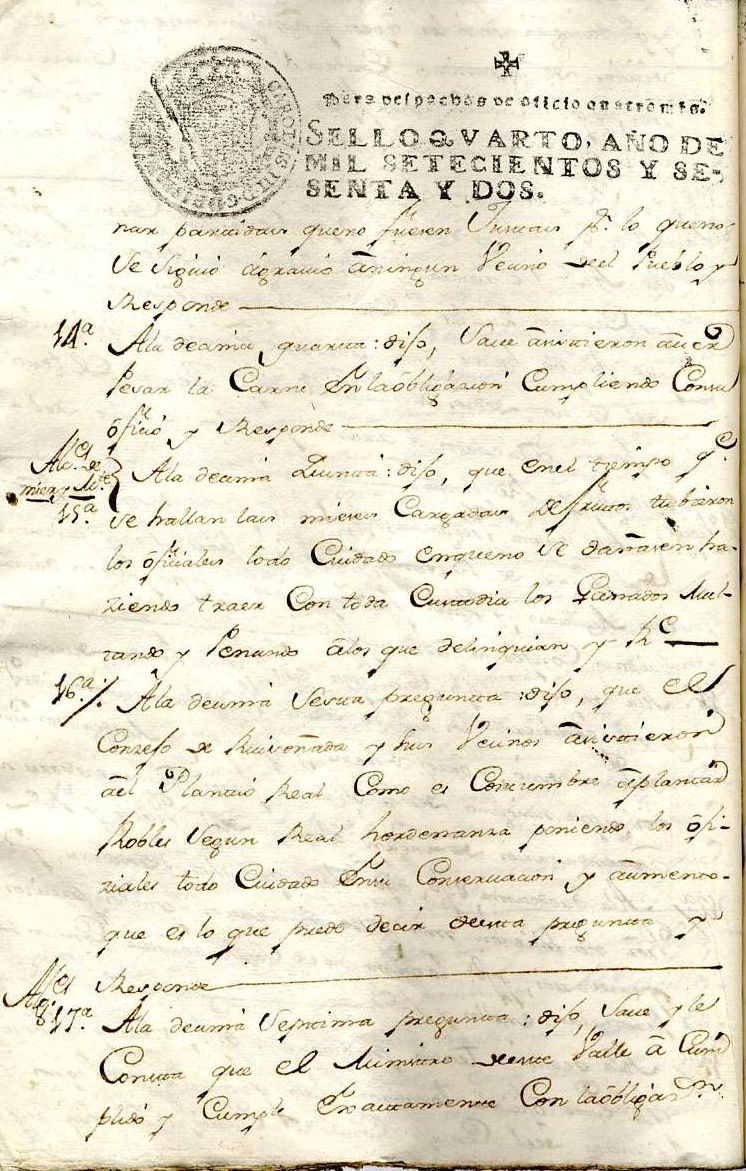 ✠
Para despachos de oficio quatro mrs.
SELLO QVARTO, AÑO DE
MIL SETECIENTOS Y SE-
SENTA Y DOS.
CAROLUS III D G
nar partidas queno fuesen Justas pr. lo queno
se siguió agravio aningun Vecino deel Pueblo y
Responde
14ª. Ala decima quarta: dijo, Save asistieron aver
Pesar la Carne En la obligazion Cumpliendo Consu
ofizio y Responde
15ª. Ala decima Quinta: dijo, que enel tiempo qe.
se hallan las mieses Cargadas de frutos tubieron
los ofiziales todo Cuidado enqueno se dañasen ha-
ziendo traer Con toda Custodia los Ganados Mul-
tando y Penando alos que delinquian y Re
16ª. Ala decima Sesta pregunta: dijo, que el
Conzejo de Ruiseñada y sus Vecinos asistieron
ael Plantio Real Como es Costumbre aplantar
Robles Segun Real hordenanza poniendo los ofi-
ziales todo Cuidado Ensu Conservacion y aumento
que es lo que puede decir desta pregunta y
Responde
17ª. Ala decima Septima pregunta: dijo, Save y le
Consta que el Ministro deste Valle a Cum
plido y Cumple Exactamente Con la obligazn.